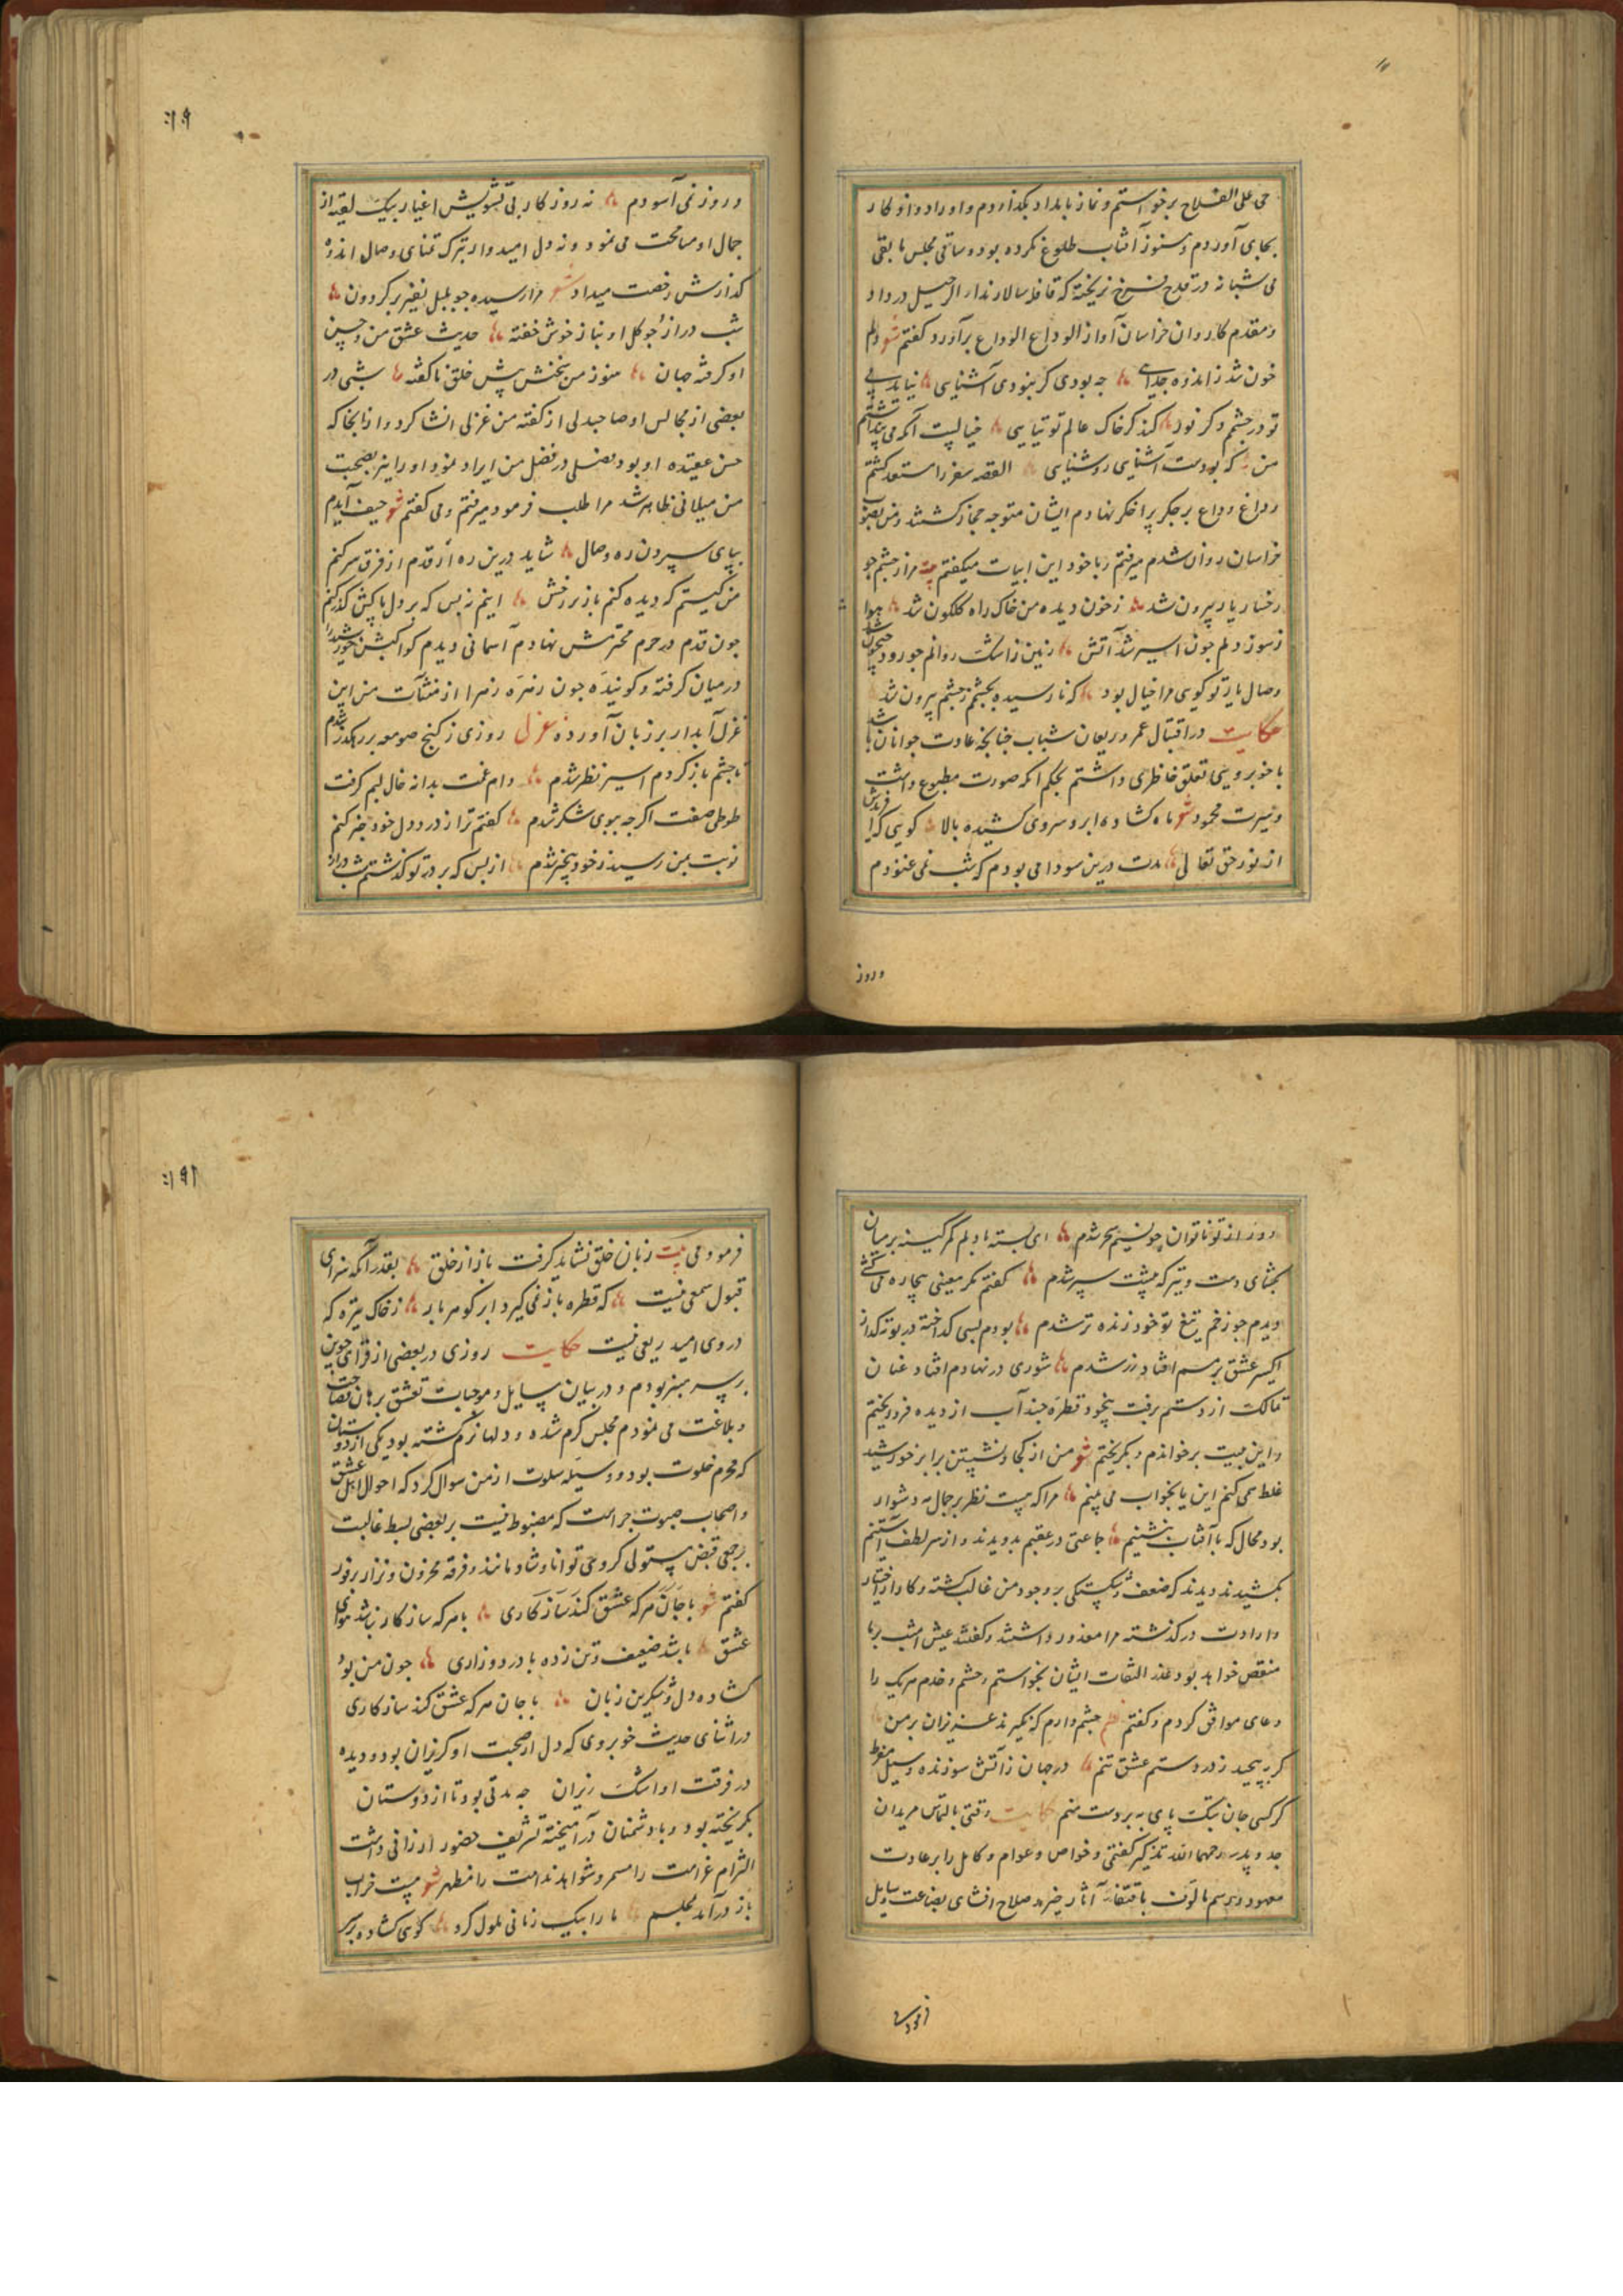 حی علی الفلاح برخواستم و نماز بامداد بکذاردم و اوراد و اذکار
بجای آوردم و هنوز آفتاب طلوع نکرده بود و ساقی مجلس ما بقی
می شبانه در قدح نریخته که قافله سالار ندا الرحیل در داد
و مقدم کاروان خراسان آواز الوداع الوداع برآورد کفتم شعر دلم
خون شد ز اندوه جدایی جه بودی کر نبودی آشنایی نیاید بی
تو در جشمم دکر نور کند کر خاک عالم توتیایی خیالیست آنکه می پنداشتم
من که بودست آشنایی روشنایی القصه سفر را مستعد کشتم
و داغ وداع بر جکر پر افکر نهادم ایشان متوجه حجاز کشتند و من بصوب
خراسان روان شدم میرفتم و با خود این ابیات میکفتم مرا ز جشم جو
رخسار یار بیرون شد ز خون دیده من خاک راه کلکون شد هوا
ز سوز دلم جون اسیر شد آتش زمین ز اشک روانم جو رود جیحون شد
وصال یار تو کویی مرا خیال بود که نارسیده بجشمم ز جشم بیرون شد
حکایت در اقتبال عمر و ریعان شباب جنانجه عادت جوانان باشد
با خوبرویی تعلق خاطری داشتم بحکم آنکه صورت مطبوع داشت
و سیرت محمود شعر ماه کشاده ابرو سروی کشیده بالا کویی که آفریدش
از نور حق تعالی مدت درین سودا می بودم که شب نمی غنودم
و روز
و روز نمی آسودم نه روزکار بی تشویش اغیار بیک لقیه از
جمال او مسامحت می نمود و نه دل امیدوار بترک تمنای وصال اندوه
کدازش رخصت میداد شعر مرا رسیده جو بلبل نفیر بر کردون
شب دراز و جو کل او بناز خوش خفته حدیث عشق من و حسن
او کرفته جهان هنوز من سخنش پیش خلق ناکفته شبی در
بعضی از مجالس او صاحبدلی از کفته من غزلی انشا کرد و از انجا که
حسن عقیده او بود فصلی در فضل من ایراد نمود او را نیز بصحبت
من میلانی ظاهر شد مرا طلب فرمود میرفتم و می کفتم شعر حیف آیدم
بپای سپردن ره وصال شاید درین ره ار قدم از فرق سر کنم
من کیستم که دیده کنم باز بر رخش اینم نه بس که بر دل پاکش کذر کنم
جون قدم در حرم محترمش نهادم آسمانی دیدم کواکبش خورشید را
در میان کرفته و کوینده جون زهره زهرا از منشآت من این
غزل آبدار بر زبان آورده غزل روزی ز کنج صومعه بر رهکذر شدم
تا جشم باز کردم اسیر نظر شدم دام غمت بدانه خال لبم کرفت
طوطی صفت اکرجه ببوی شکر شدم کفتم ترا ز درد دل خود خبر کنم
نوبت بمن رسید ز خود بیخبر شدم از بس که بر در تو کذشتم شب دراز
۱۹۰
و روز از تو ناتوان جو نسیم سحر شدم ای بسته با دلم کمر کینه بر میان
بکشای دست و تیر که پیشت سپر شدم کفتم مکر معینی بیجاره می کشی
دیدم جو زخم تیغ تو خود زنده تر شدم بودم بسی کداخته در بوته کداز
اکسیر عشق بر مسم افتاد و زر شدم شوری در نهادم افتاد و عنان
تمالک از دستم برفت بیخود قطره جند آب از دیده فرو ریختم
و این بیت برخواندم و بکریختم شعر من از کجا و نشستن برابر خورشید
غلط همی کنم این یا بخواب می بینم مرا که نیست نظر بر جمال مه دشوار
بود محال که با آفتاب بنشینم جماعتی در عقبم بدویدند و از سر لطف آستینم
بکشیدند دیدند که ضعف و شکستکی بر وجود من غالب کشته و کار از اختیار
و ارادت در کذشته مرا معذور داشتند و کفتند عیش امشب بر ما
منغص خواهد بود عذر التفات ایشان بخواستم و حشم و خدم هر یک را
دعای موافق کردم و کفتم جشم دارم که نکیرند عزیزان بر من
کر بپیچید ز در دستم عشق تنم در جهان ز آتش سوزنده و سیل
کر کسی جان بتک پای ببردست منم حکایت وقتی بالتماس مریدان
جد و پدر رحمهما الله تذکیر کفتمی و خواص و عوام و کامل را بر عادت
معهود و رسم مألوف باقتفاء آثار خیر صلاح افشای بضاعت وسایل
فرمودمی بیت زبان خلق نشاید کرفت باز از خلق بقدر آنکه سزای
قبول سمعی نیست که قطره باز نمی کیرد ابر کوهر بار ز خاک تیره که
در وی امید ریعی نیست حکایت روزی در بعضی از قرای جوین
بر سر منبر بودم و در بیان مسایل و موجبات تعشق برهان فصاحت
و بلاغت می نمودم مجلس کرم شده و دلها نرم کشته بود یکی از دوستان
که محرم خلوت بود و وسیله سلوت از من سوال کرد که احوال اهل عشق
و اصحاب صبوت جراست که مضبوط نیست بر بعضی بسط غالبست
بر جمعی قبض مستولی کروهی توانا و شاد مانند و فرقه محزون و نزار
کفتم شعر با جان هر که عشق کند سازکاری با هر که سازکار نباشد هوای
عشق باشد ضعیف و تن زده با درد و زاری جون من بود
کشاده دل و شکرین زبان با جان هر که عشق کند سازکاری
در اثنای حدیث خوبرویی که دل از صحبت او کریزان بود و دیده
در فرقت او اشک ریزان جه مدتی بود تا از دوستان
بکریخته بود و با دشمنان در آمیخته تشریف حضور ارزانی داشت
التزام غرامت را مسمر و شواهد ندامت را مظهر شعر مست خراب
باز در آمد بمجلسم ما را بیک زمانی ملول کرد کوی کشاده بر
۱۹۱